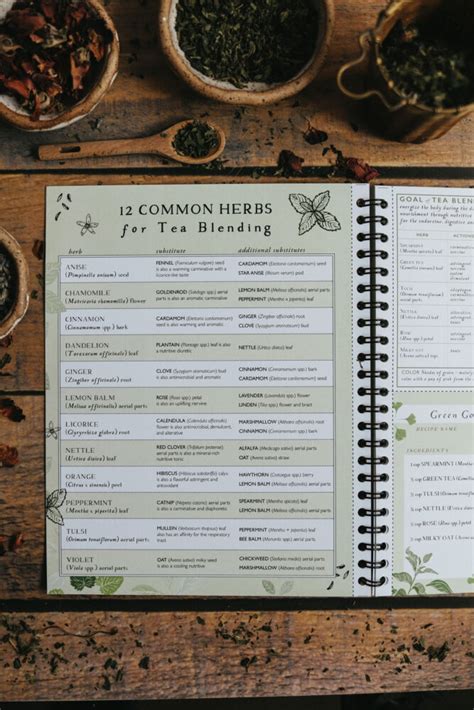 12 COMMON HERBS
for Tea Blending
herb substitute additional substitutes
ANISE
(Pimpinella anisum) seed
FENNEL (Foeniculum vulgare) seed
is also a warming carminative with a
licorice-like taste
CARDAMOM (Elettaria cardamomum) seed
STAR ANISE (Illicium verum)
CHAMOMILE
(Matricaria chamomilla) flower
GOLDENROD (Solidago spp.) aerial
parts is also an aromatic carminative
LEMON BALM (Melissa officinalis) aerial parts
PEPPERMINT (Mentha × piperita) leaf
CINNAMON
(Cinnamomum spp.) bark
CARDAMOM (Elettaria cardamomum)
seed is also warming and aromatic
GINGER (Zingiber officinale)
CLOVE (Syzygium aromaticum)
DANDELION
(Taraxacum officinale) leaf
PLANTAIN (Plantago spp.) leaf is also a
nutritive diuretic
NETTLE (Urtica dioica) leaf
GINGER
(Zingiber officinale)
CLOVE (Syzygium aromaticum)
is also antimicrobial and aromatic
CINNAMON (Cinnamomum spp.) bark
CARDAMOM (Elettaria cardamomum) seed
LEMON BALM
(Melissa officinalis) aerial parts
ROSE (Rosa spp.) petal
is also an uplifting nervine
LAVENDER (Lavandula spp.)
LINDEN (Tilia spp.)
LICORICE
(Glycyrrhiza glabra) root
CALENDULA (Calendula officinalis)
is also antimicrobial, demulcent,
and alterative
MARSHMALLOW (Althaea officinalis)
CINNAMON (Cinnamomum spp.) bark
NETTLE
(Urtica dioica) leaf
RED CLOVER (Trifolium pratense)
aerial parts is also a mineral-rich
nutritive
ALFALFA (Medicago sativa)
OAT (Avena sativa) straw
ORANGE
(Citrus × sinensis) peel
HIBISCUS (Hibiscus sabdariffa) calyx
is also a flavorful astringent and
antioxidant
HAWTHORN (Crataegus spp.)
LEMON BALM (Melissa officinalis) aerial parts
PEPPERMINT
(Mentha × piperita) leaf
CATNIP (Nepeta cataria) aerial parts
is also a carminative and diaphoretic
SPEARMINT (Mentha spicata) leaf
LEMON BALM (Melissa officinalis) aerial parts
TULSI
(Ocimum tenuiflorum) aerial parts
MULLEIN (Verbascum thapsus) leaf
also has an affinity for the respiratory
tract
PEPPERMINT (Mentha × piperita) leaf
BEE BALM (Monarda spp.) aerial parts
VIOLET
(Viola spp.) aerial parts
OAT (Avena sativa) milky seed
is also a cooling nutritive
CHICKWEED (Stellaria media) aerial parts
MARSHMALLOW (Althaea officinalis) leaf
12
GOAL of TEA BLEND
energize the body during the
nourishment through nutritive
for the endocrine, digestive a
HERB ACTIONS
SPEARMINT
TULSI
NETTLE
(Urtica dioica)
leaf
ROSE
(Rosa spp.)
petal
Green Go
RECIPE NAME
INGREDIENTS
1 CUP SPEARMINT (Mentha
1 CUP TULSI (Ocimum
NETTLE (Urtica
ROSE (Rosa spp.)
MILKY OAT (Avena